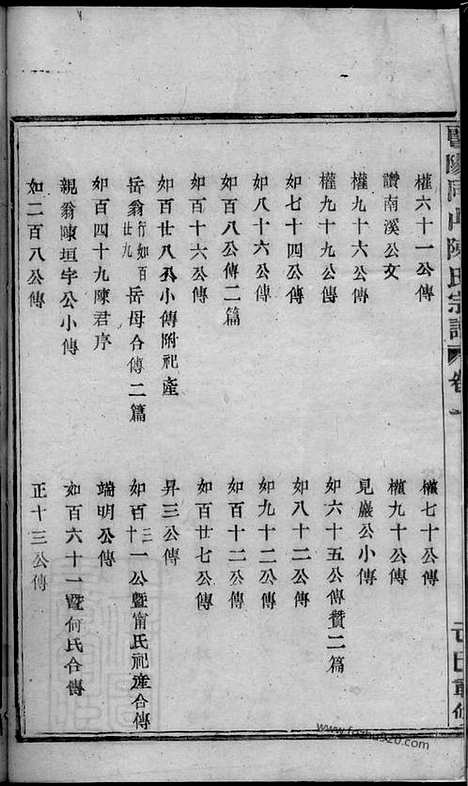 暨陽同山陳氏宗譜 卷一
權六十一公傳
權七十公傳
讚南溪公文
權九十公傳
權九十六公傳
見巖公小傳
權九十九公傳
如六十五公傳贊二篇
如七十四公傳
如八十二公傳
如八十六公傳
如九十二公傳
如百八公傳二篇
如百十二公傳
如百十六公傳
如百廿七公傳
如百廿八公小傳附祀產
昇三公傳
岳翁行如百廿九岳母合傳二篇
如百三十一公暨甯氏祀産合傳
如百四十九陳君序
端明公傳
親翁陳垣宇公小傳
如百六十一暨何氏合傳
如二百八公傳
正十三公傳
重修
www.fozhu920.com